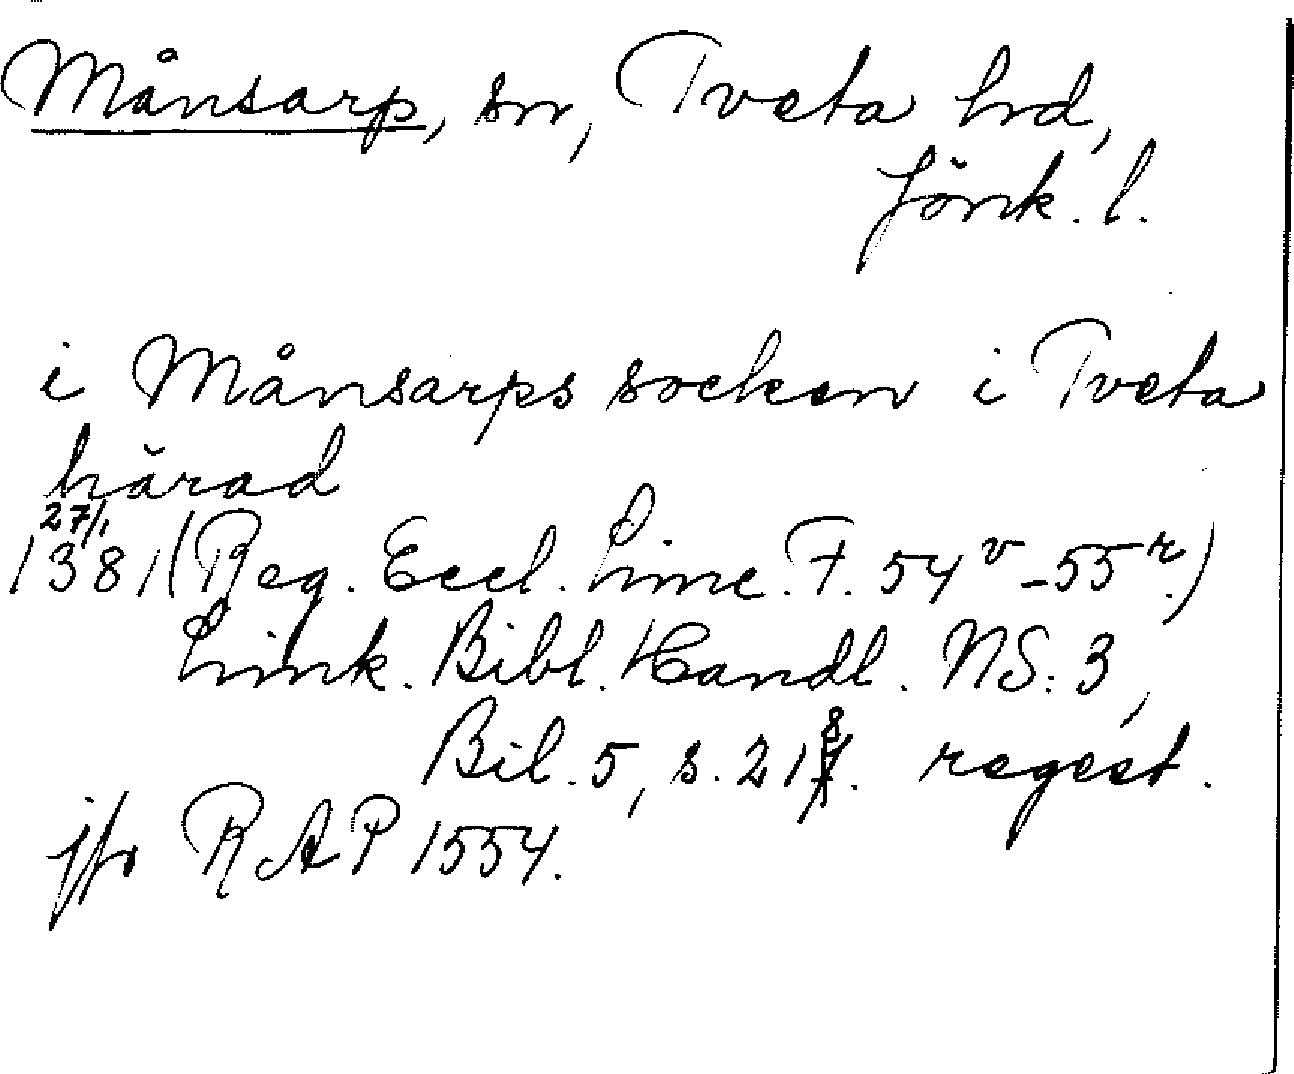 Månsarp, sn, Tveta hrd,
Jönk. l.
i Månsarps socken i Tveta
härad
27/1
1381 (Reg. Eccl. Linc. F. 54v - 55r.)
Link. Bibl. Handl. NS: 3,
Bil. 5, s. 218. regest.
jfr RAP 1554.